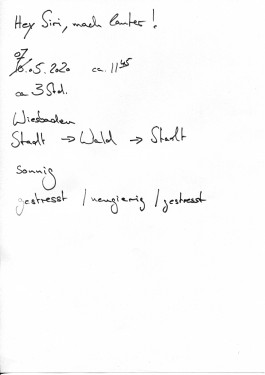 Hey Siri, mach lauter!
07
.05.2020 ca. 11 45
ca. 3 Std.
Wiesbaden
Stadt → Wald → Stadt
sonnig
gestresst / neugierig / gestresst